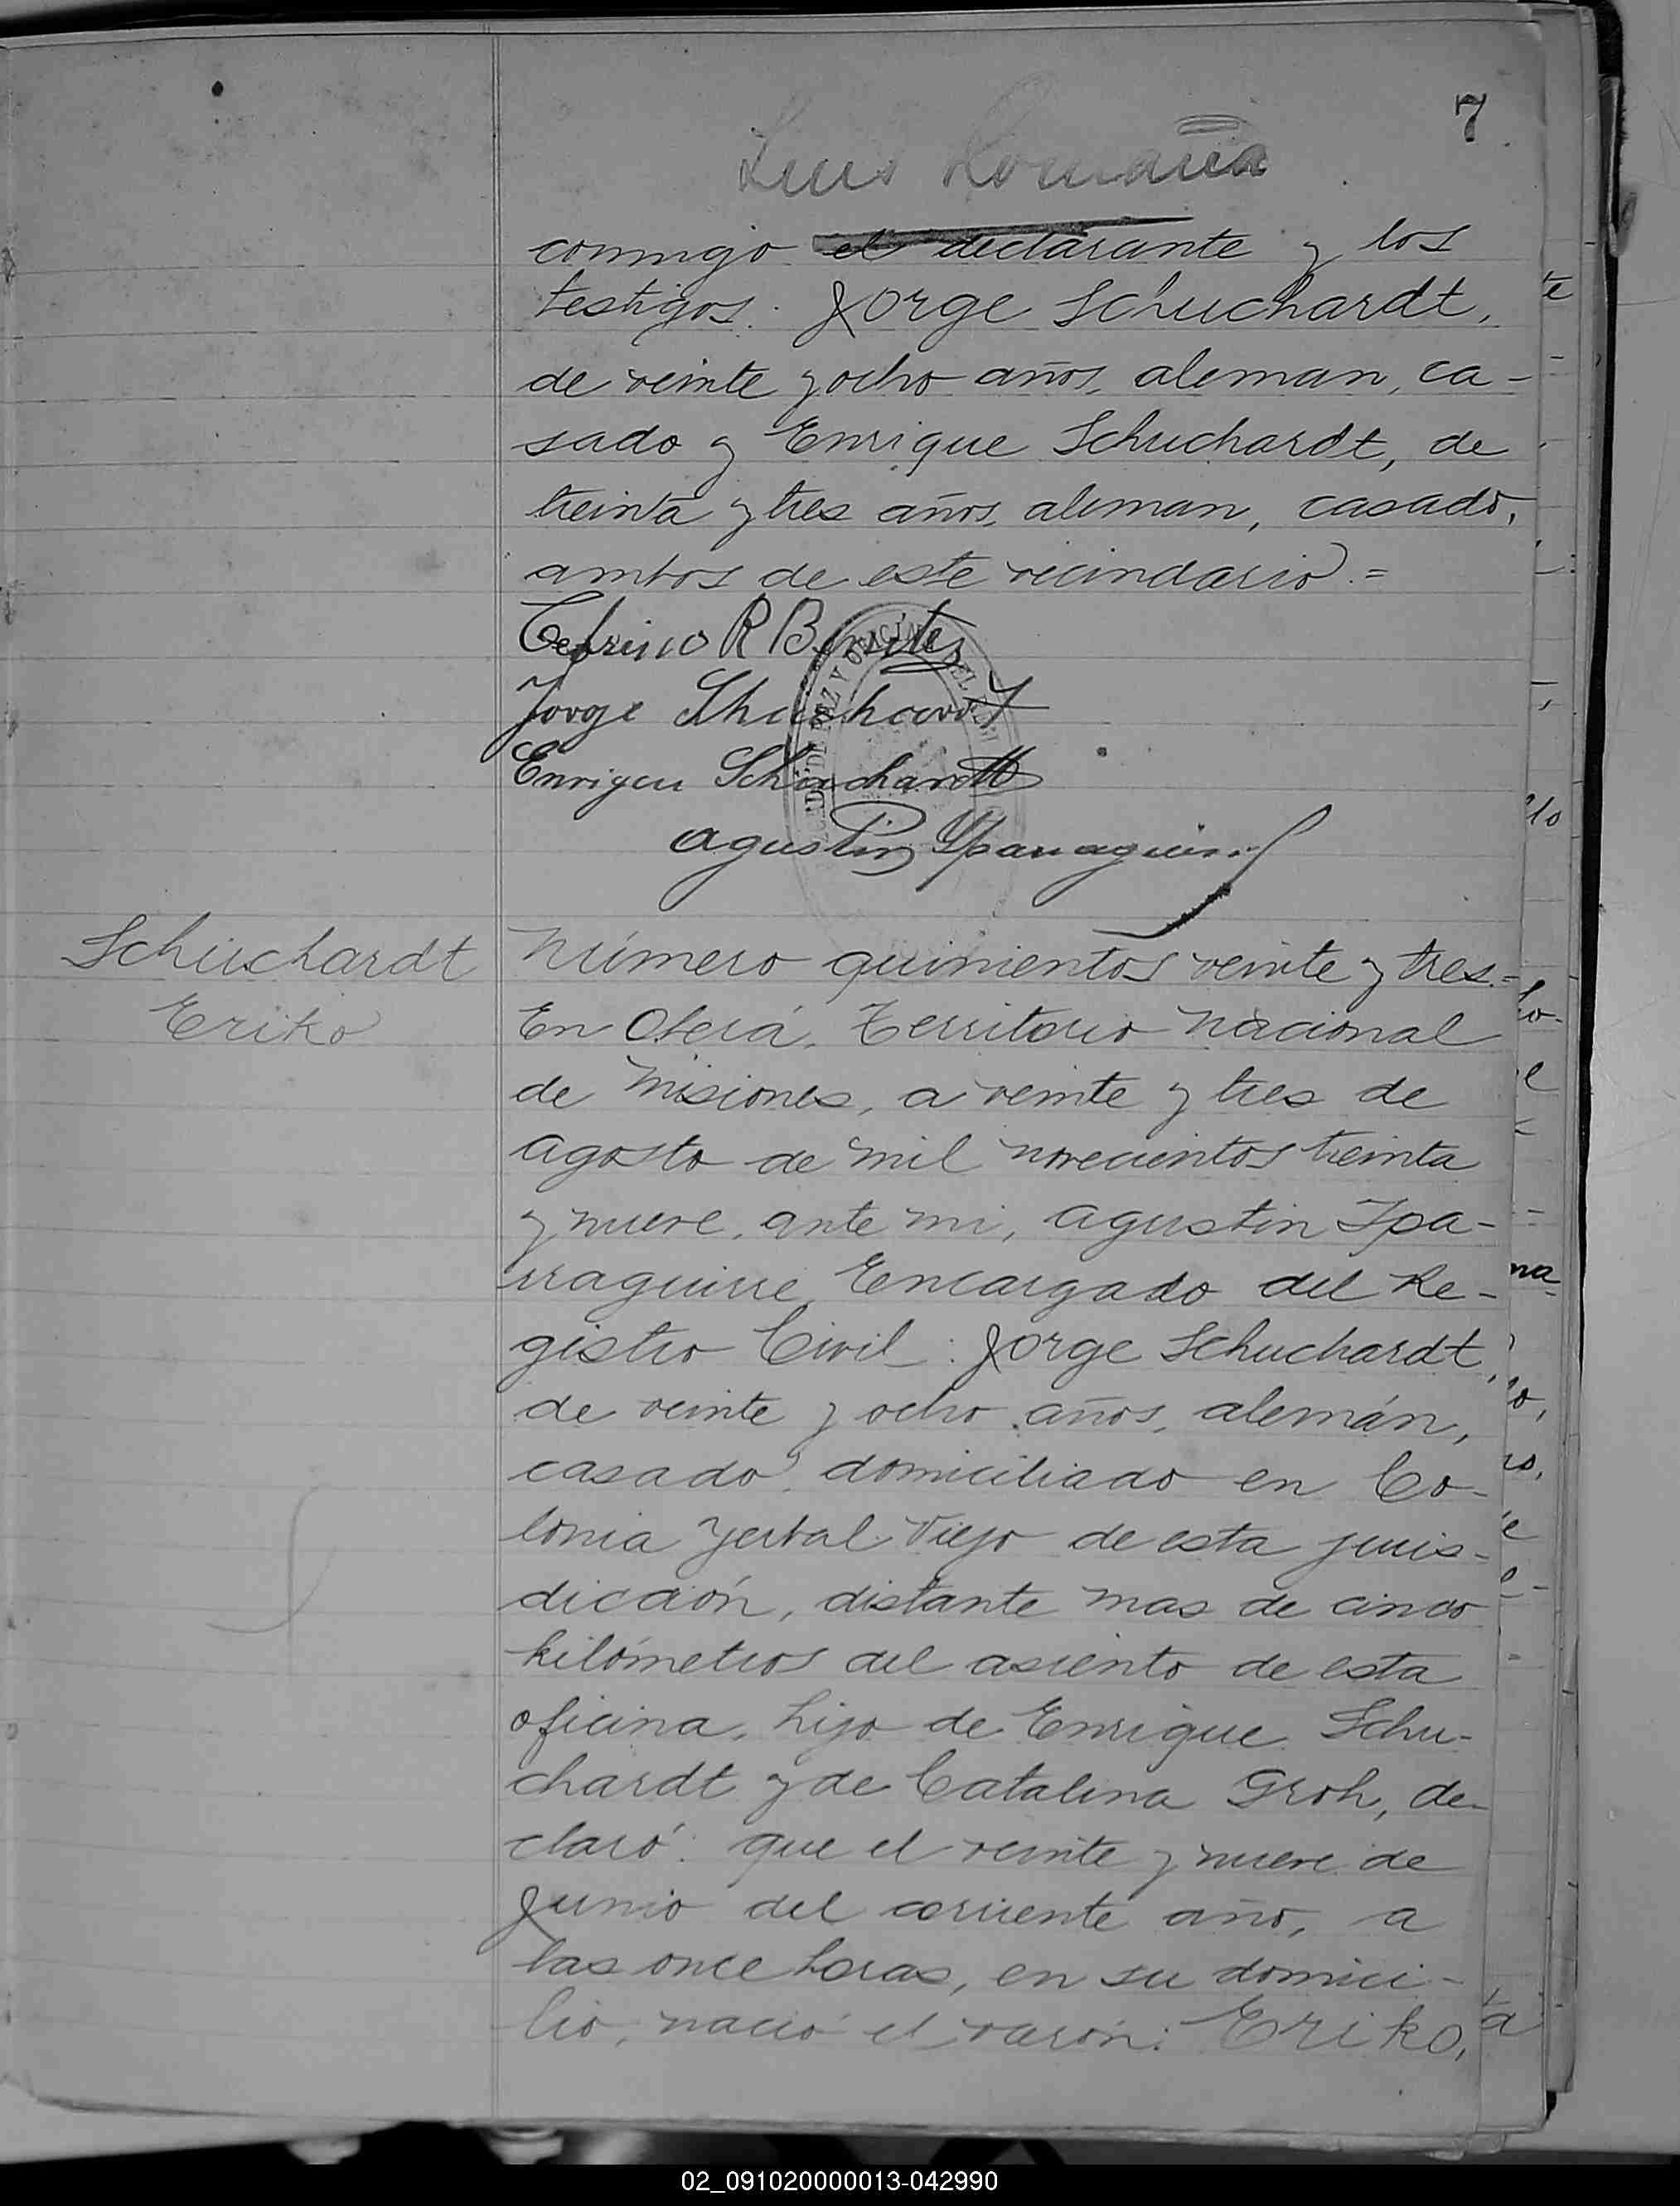 7
Luis Romaña
conmigo el declarante y los
testigos: Jorge Schuchardt,
de veinte y ocho años, aleman, ca-
sado y Enrique Schuchardt, de
treinta y tres años, aleman, casado,
ambos de este vecindario.=
Ceferino R Benitez
Jorge Schuchardt
Enrique Schuchardt
Agustin Yparraguirre
Schuchardt
Eriko
Número quinientos veinte y tres.=
En Oberá, Territorio Nacional
de Misiones, a veinte y tres de
Agosto de mil novecientos treinta
y nueve, ante mi, Agustin Ipa-
rraguirre, Encargado del Re-
gistro Civil: Jorge Schuchardt,
de veinte y ocho años, alemán,
casado, domiciliado en Co-
lonia Yerbal Viejo de esta juris-
dicción, distante mas de cinco
kilómetros del asiento de esta
oficina, hijo de Enrique Schu-
chardt y de Catalina Groh, de-
claró: que el veinte y nueve de
Junio del corriente año, a
las once horas, en su domici-
lio, nació el varón: Eriko,
02_091020000013-042990